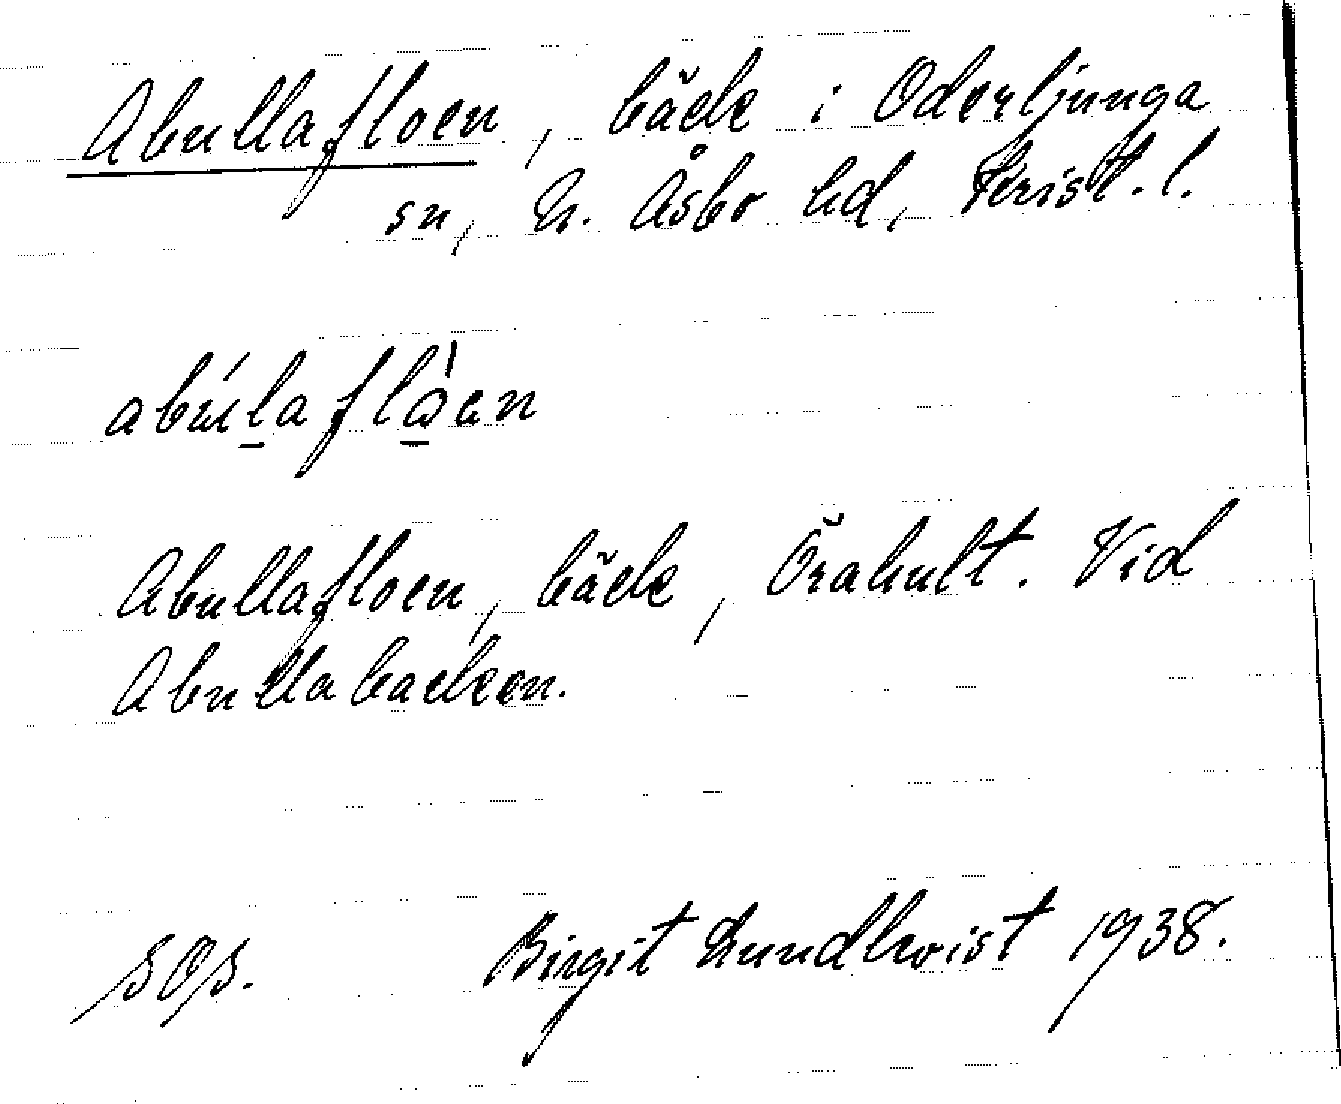 Abullafloen, bäck i Oderljunga
sn, N. Åsbo hd, Krist. l.
abúlaflåen
Abullafloen, bäck, Örahult. Vid
Abullabacken.
SOS. Birgit Lundkvist 1938.